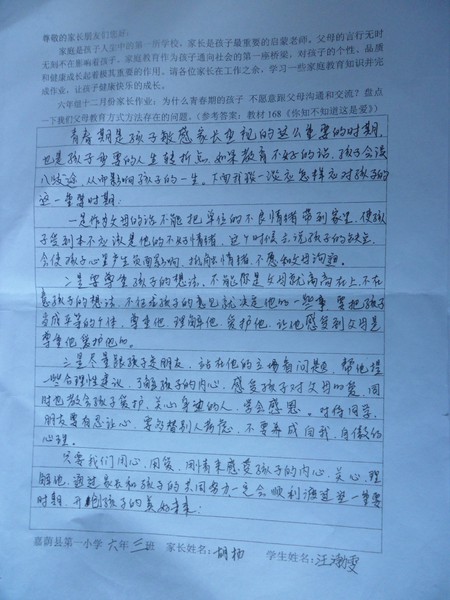 尊敬的家长朋友们您好:
家庭是孩子人生中的第一所学校,家长是孩子最重要的启蒙老师。父母的言行无时
无刻不在影响着孩子。家庭教育作为孩子通向社会的第一座桥梁,对孩子的个性、品质
和健康成长起着极其重要的作用。请各位家长在工作之余,学习一些家庭教育知识并完
成作业,让孩子健康快乐的成长。
六年级十二月份家长作业:为什么青春期的孩子 不愿意跟父母沟通和交流?盘点
一下我们父母教育方式方法存在的问题。(参考答案:教材168《你知不知道这是爱》)
青春期是孩子敏感家长重视的这么重要的时期,
也是孩子重要的人生转折点,如果教育不好的话,孩子会误
入歧途,从而影响孩子的一生。下面我谈一谈应怎样应对孩子的
这一重要时期:
一是作为父母的话不能把单位的不良情绪带到家里,使孩
子受到本不应该是他的不好情绪,这个时候去说孩子的缺点,
会使孩子心里产生负面影响,抵触情绪,不愿和父母沟通。
二是要尊重孩子的想法,不能你是父母就高高在上,不在
意孩子的想法,不经孩子的意见就决定他的一些事,要把孩子
当成平等的个体,尊重他,理解他,爱护他,让他感受到父母是
尊重他爱护他的。
三是尽量跟孩子是朋友,站在他的立场看问题,帮他提
一些合理性建议,了解孩子的内心,感受孩子对父母的爱,同
时也教会孩子爱护、关心身边的人,学会感恩。对待同学、
朋友要有忍让心,要为替别人着想,不要养成自我、自傲的
心理。
只要我们用心,用爱,用情来感受孩子的内心,关心,理
解他,通过家长和孩子的共同努力一定会顺利渡过这一重要
时期,开创孩子的美好未来!
嘉荫县第一小学 六年 三班 家长姓名: 胡杨 学生姓名: 汪渤雯